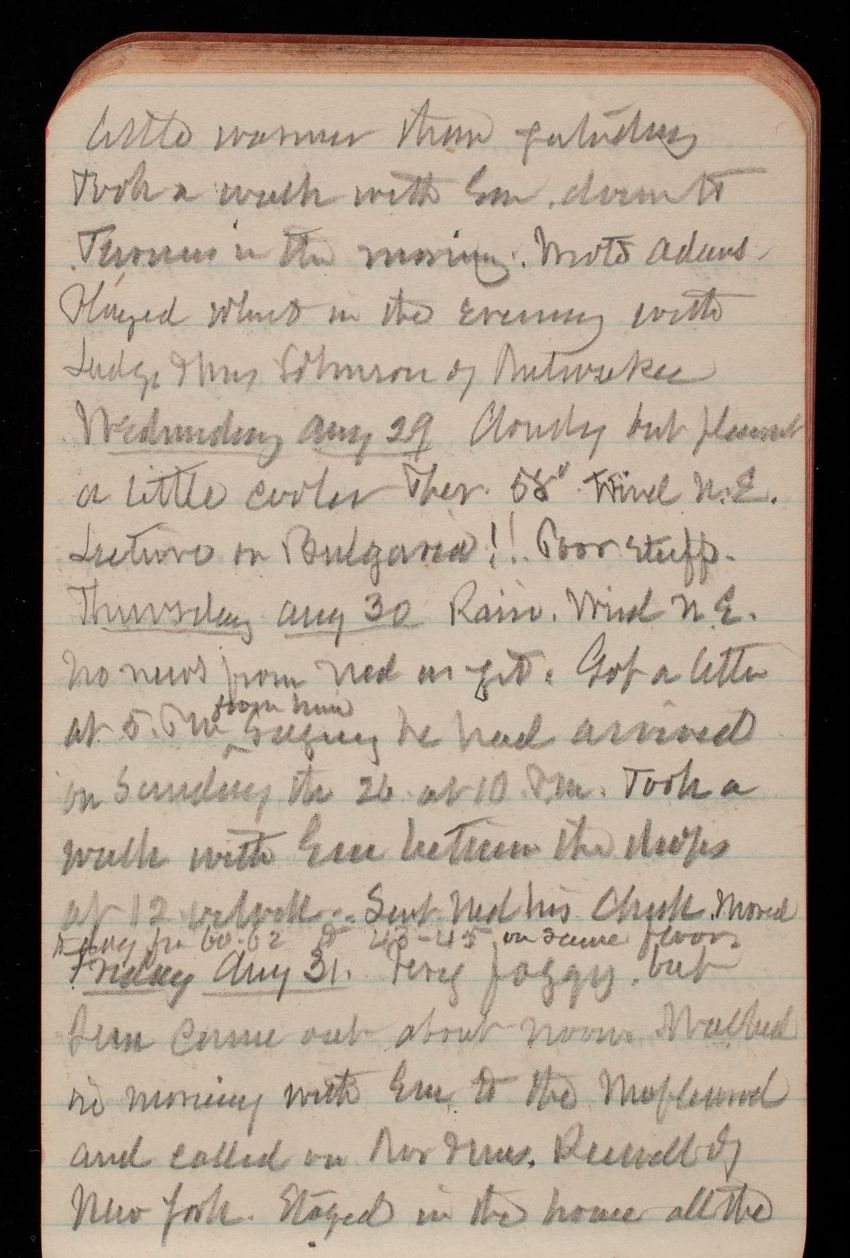 little warmer than yesterday
Took a walk with Em. down to
in the morning. Wrote Adams.
Played Whist in the evening with
Judge & Mrs Johnson of Milwaukee
Wednesday Aug 29 Cloudy but pleasant
a little cooler Ther. 58° Wind N.E.
Lecture on Bulgaria!! Poor stuff.
Thursday Aug 30 Rain. Wind N.E.
No news from Ned as yet. Got a letter
from him
at 5. P.M. saying he had arrived
on Sunday the 26 at 10 P.M. Took a
walk with Em between the drops
at 12 oclock. Sent Ned his Check. Moved
to day fr 60-62 to 43-45 on same floor.
Friday Aug 31. Very foggy, but
Sun came out about noon. Walked
in morning with Em. to the
and called on & Mrs. of
New York. Stayed in the house all the